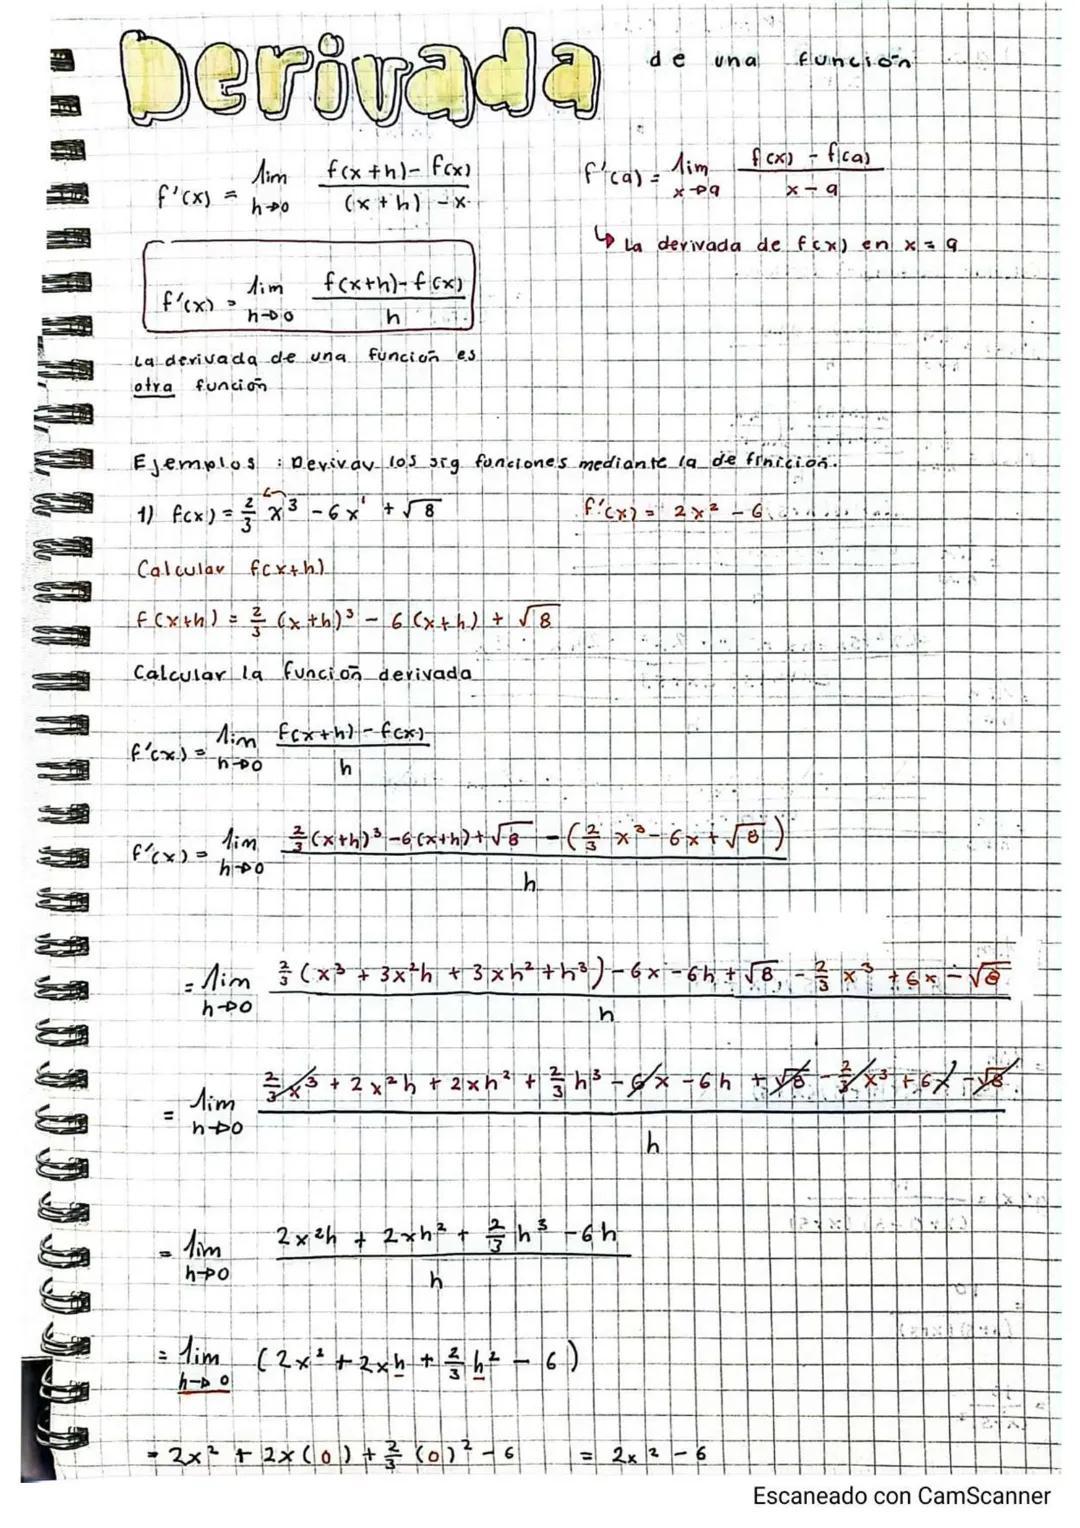 Derivada de una función
f'(x) = lim h→0 f(x+h) - f(x) / (x+h) - x
f'(a) = lim x→a f(x) - f(a) / x - a
↳ La derivada de f(x) en x = a
f'(x) = lim h→0 f(x+h) - f(x) / h
La derivada de una función es
otra función
Ejemplos : Derivar los sig funciones mediante la definición.
1) f(x) = 2/3 x³ - 6x¹ + √8
f'(x) = 2x² - 6
Calcular f(x+h)
f(x+h) = 2/3 (x+h)³ - 6(x+h) + √8
Calcular la función derivada
f'(x) = lim h→0 f(x+h) - f(x) / h
f'(x) = lim h→0 2/3 (x+h)³ - 6(x+h) + √8 - (2/3 x³ - 6x + √8) / h
= lim h→0 2/3 (x³ + 3x²h + 3xh² + h³) - 6x - 6h + √8 - 2/3 x³ + 6x - √8 / h
= lim h→0 2/3 x³ + 2x²h + 2xh² + 2/3 h³ - 6x - 6h + √8 - 2/3 x³ + 6x - √8 / h
= lim h→0 2x²h + 2xh² + 2/3 h³ - 6h / h
= lim h→0 (2x² + 2xh + 2/3 h² - 6)
= 2x² + 2x(0) + 2/3 (0)² - 6 = 2x² - 6
Escaneado con CamScanner